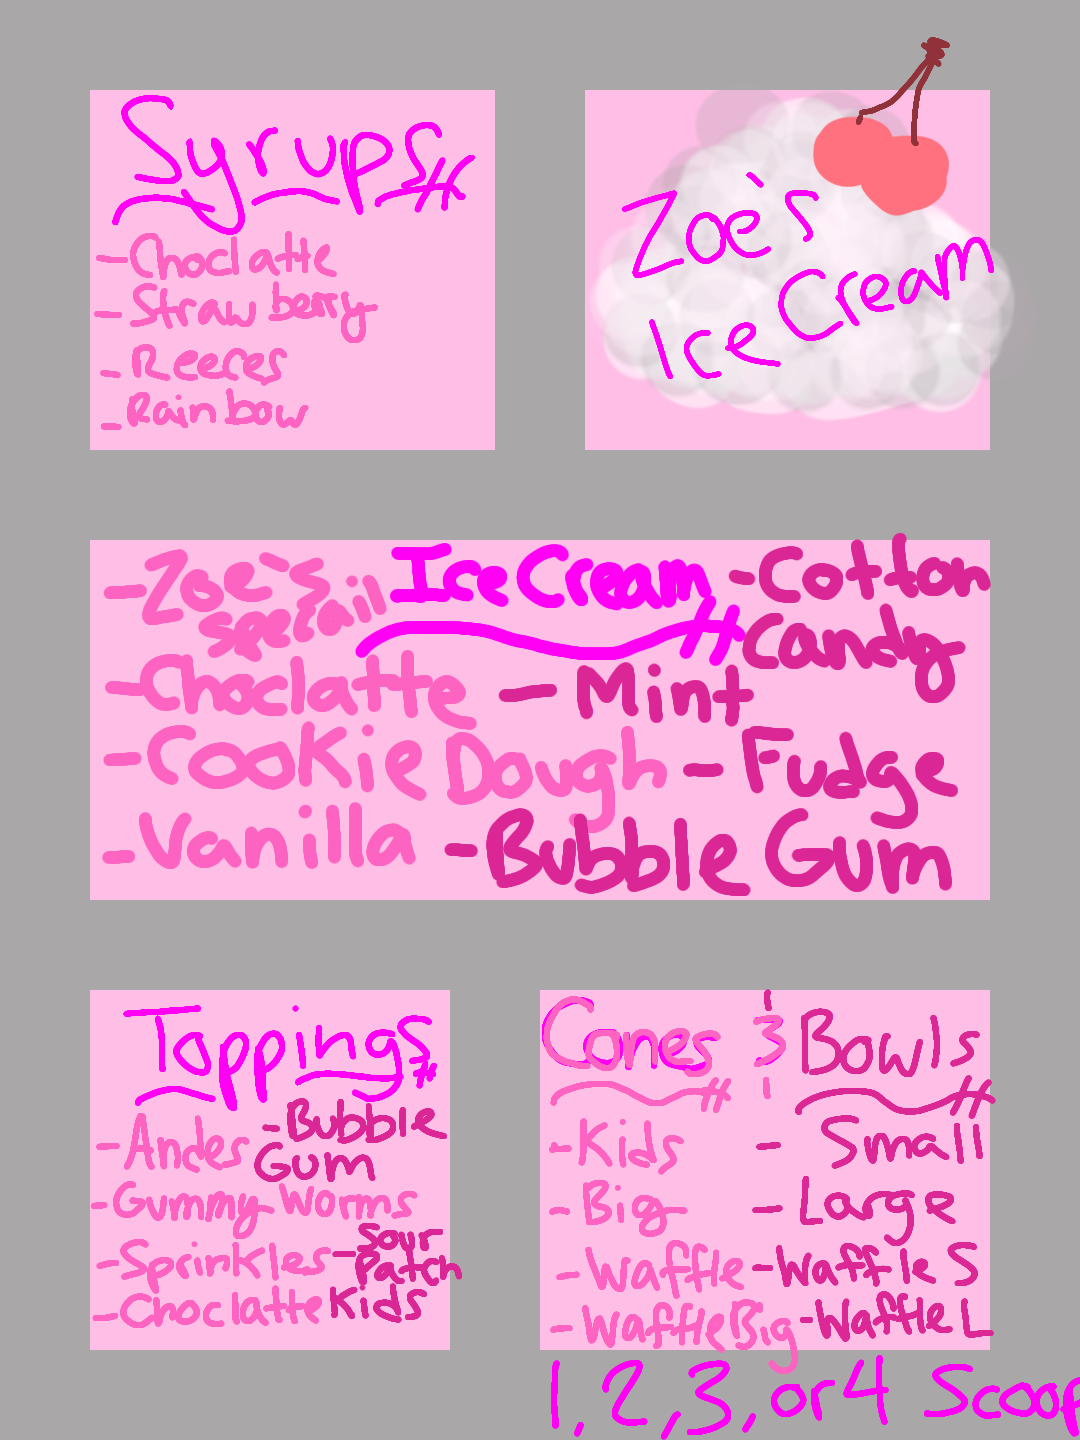 Syrups
-Choclatte
-Strawberry
-Reeces
-Rainbow
Zoe's
Ice Cream
Ice Cream
-Zoe's
specail
-Choclatte
-Cookie Dough
-Vanilla
-Cotton
Candy
-Mint
-Fudge
-Bubble Gum
Toppings
-Andes
-Gummy Worms
-Sprinkles
-Choclatte
-Bubble
Gum
-Sour
Patch
Kids
Cones & Bowls
-Kids
-Big
-Waffle
-Waffle Big
-Small
-Large
-Waffle S
-Waffle L
1, 2, 3, or 4 Scoop